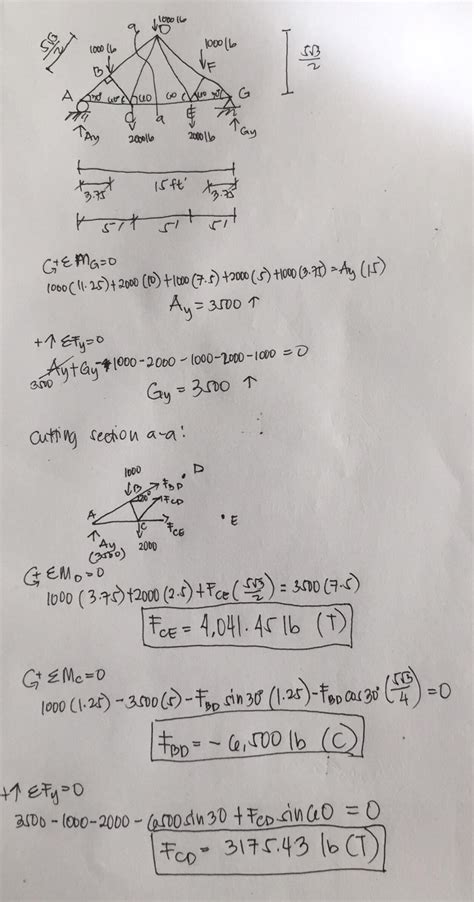 1000 lb
a
D
5√3/2
1000 lb
1000 lb
5√3/2
B
F
A
30°
60°
C
60
60
E
60
30°
G
Ay
2000 lb
a
2000 lb
Gy
15 ft'
3.75
3.75
5'
5'
5'
↺+ ΣMG=0
1000(11.25)+2000(10)+1000(7.5)+2000(5)+1000(3.75)=Ay(15)
Ay = 3500 ↑
+↑ ΣFy=0
Ay+Gy-1000-2000-1000-2000-1000=0
3500
Gy = 3500 ↑
Cutting section a-a:
1000
D
B
FBD
120°
FCD
A
C
FCE
E
Ay
(3500)
2000
↺+ ΣMD=0
1000(3.75)+2000(2.5)+FCE(5√3/2)=3500(7.5)
FCE = 4,041.45 lb (T)
↺+ ΣMC=0
1000(1.25)-3500(5)-FBD sin30°(1.25)-FBD cos30°(5√3/4)=0
FBD = -6,500 lb (C)
+↑ ΣFy=0
3500-1000-2000-6500sin30+FCD sin60=0
FCD = 3175.43 lb (T)